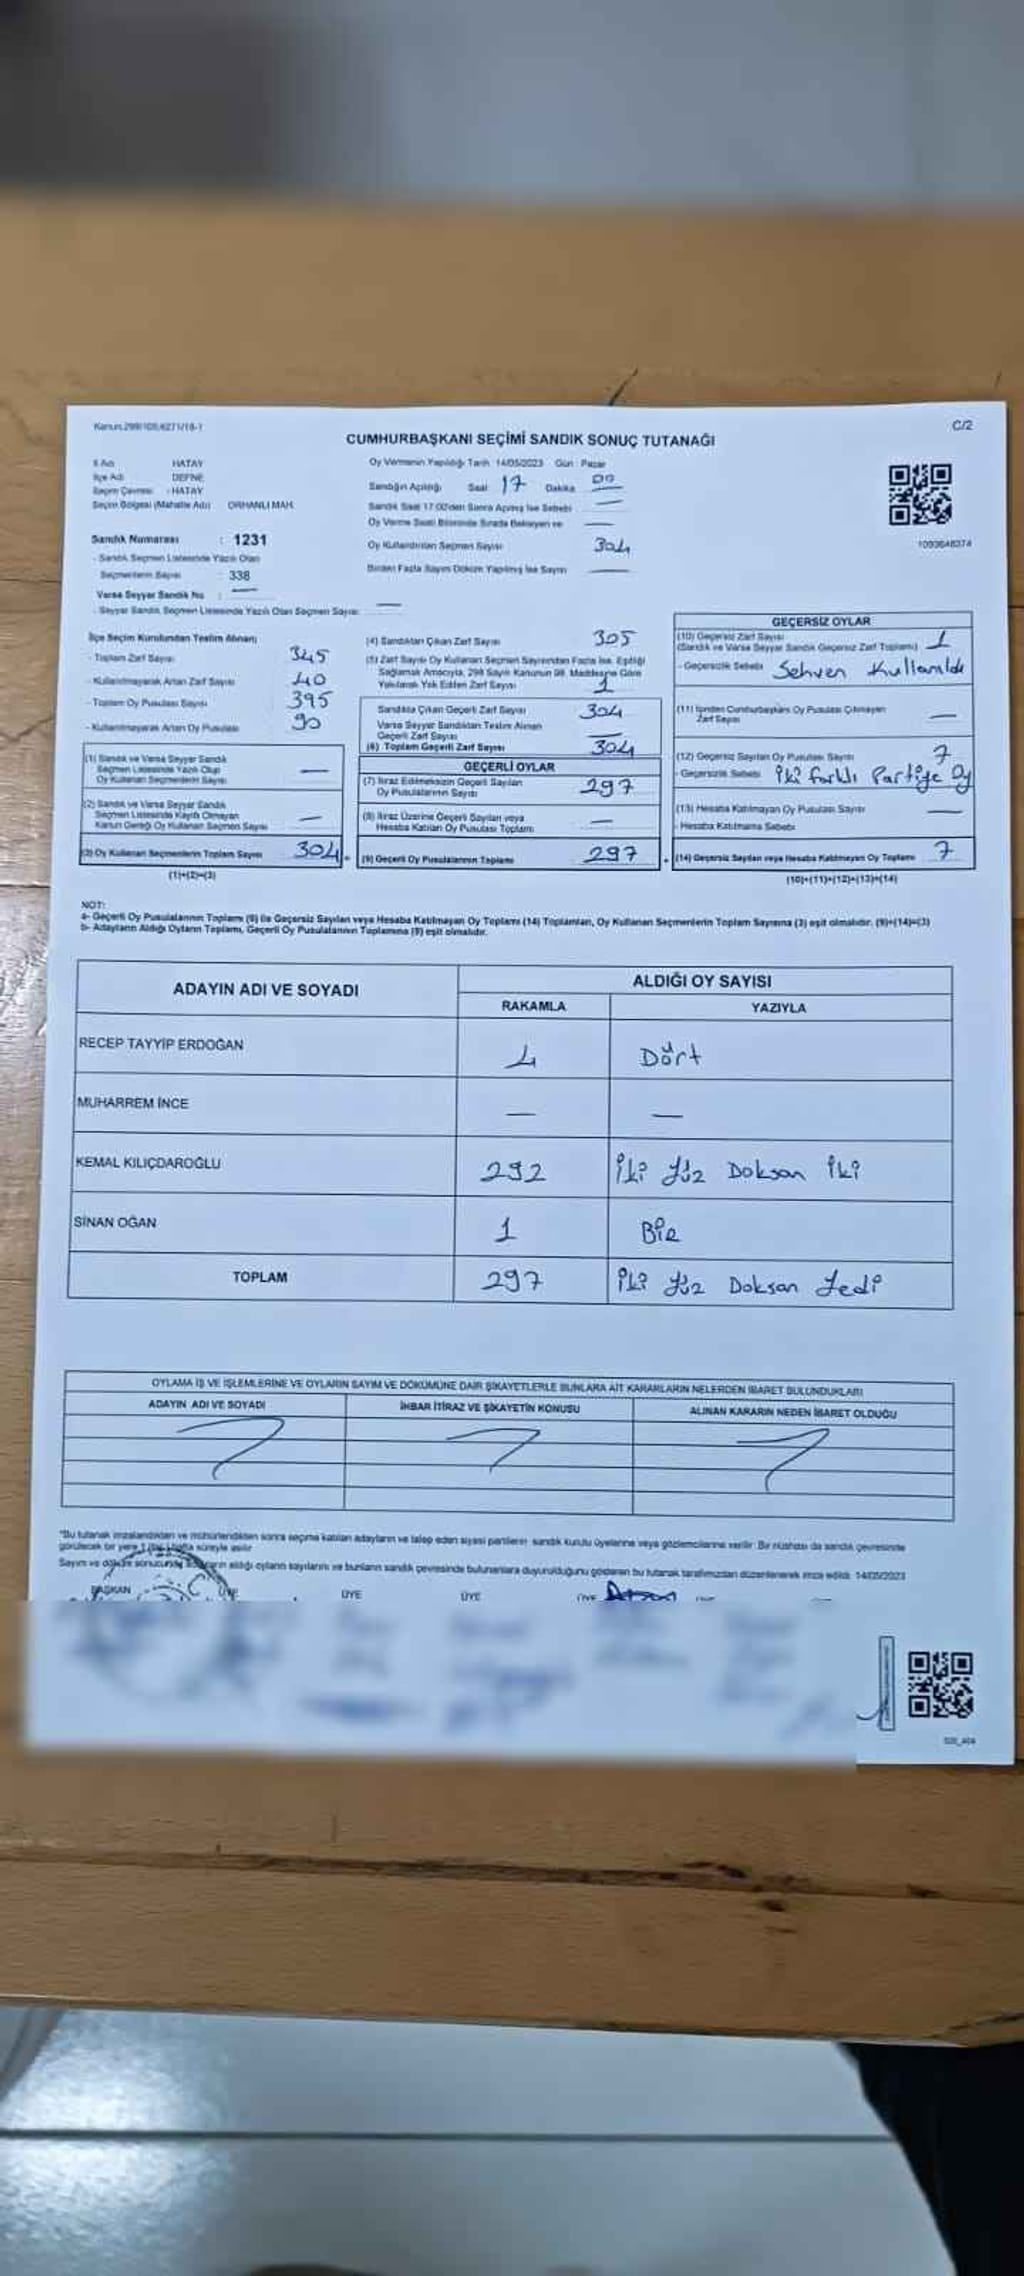 Kanun.298/105,6271/18-1
C/2
CUMHURBAŞKANI SEÇİMİ SANDIK SONUÇ TUTANAĞI
İl Adı : HATAY
İlçe Adı : DEFNE
Seçim Çevresi : HATAY
Seçim Bölgesi (Mahalle Adı) ORHANLI MAH.
Sandık Numarası : 1231
- Sandık Seçmen Listesinde Yazılı Olan
Seçmenlerin Sayısı : 338
Varsa Seyyar Sandık No : —
- Seyyar Sandık Seçmen Listesinde Yazılı Olan Seçmen Sayısı: —
Oy Vermenin Yapıldığı Tarih 14/05/2023 Gün Pazar
Sandığın Açıldığı Saat 17 Dakika 00
Sandık Saat 17.00'den Sonra Açılmış İse Sebebi —
Oy Verme Saati Bitiminde Sırada Bekleyen ve —
Oy Kullandırılan Seçmen Sayısı 304
Birden Fazla Sayım Döküm Yapılmış İse Sayısı —
1093648374
İlçe Seçim Kurulundan Teslim Alınan;
- Toplam Zarf Sayısı 345
- Kullanılmayarak Artan Zarf Sayısı 40
- Toplam Oy Pusulası Sayısı 395
- Kullanılmayarak Artan Oy Pusulası 90
(1) Sandık ve Varsa Seyyar Sandık
Seçmen Listesinde Yazılı Olup
Oy Kullanan Seçmenlerin Sayısı —
(2) Sandık ve Varsa Seyyar Sandık
Seçmen Listesinde Kayıtlı Olmayan
Kanun Gereği Oy Kullanan Seçmen Sayısı —
(3) Oy Kullanan Seçmenlerin Toplam Sayısı 304
(1)+(2)=(3)
(4) Sandıktan Çıkan Zarf Sayısı 305
(5) Zarf Sayısı Oy Kullanan Seçmen Sayısından Fazla İse, Eşitliği
Sağlamak Amacıyla, 298 Sayılı Kanunun 98. Maddesine Göre
Yakılarak Yok Edilen Zarf Sayısı 1
Sandıkta Çıkan Geçerli Zarf Sayısı 304
Varsa Seyyar Sandıktan Teslim Alınan
Geçerli Zarf Sayısı —
(6) Toplam Geçerli Zarf Sayısı 304
GEÇERLİ OYLAR
(7) İtiraz Edilmeksizin Geçerli Sayılan
Oy Pusulalarının Sayısı 297
(8) İtiraz Üzerine Geçerli Sayılan veya
Hesaba Katılan Oy Pusulası Toplamı —
(9) Geçerli Oy Pusulalarının Toplamı 297
GEÇERSİZ OYLAR
(10) Geçersiz Zarf Sayısı 1
(Sandık ve Varsa Seyyar Sandık Geçersiz Zarf Toplamı)
- Geçersizlik Sebebi Sehven Kullanıldı
(11) İçinden Cumhurbaşkanı Oy Pusulası Çıkmayan
Zarf Sayısı —
(12) Geçersiz Sayılan Oy Pusulası Sayısı 7
- Geçersizlik Sebebi İki farklı Partiye Oy
(13) Hesaba Katılmayan Oy Pusulası Sayısı —
- Hesaba Katılmama Sebebi
(14) Geçersiz Sayılan veya Hesaba Katılmayan Oy Toplamı 7
(10)+(11)+(12)+(13)=(14)
NOT:
a- Geçerli Oy Pusulalarının Toplamı (9) ile Geçersiz Sayılan veya Hesaba Katılmayan Oy Toplamı (14) Toplamları, Oy Kullanan Seçmenlerin Toplam Sayısına (3) eşit olmalıdır. (9)+(14)=(3)
b- Adayların Aldığı Oyların Toplamı, Geçerli Oy Pusulalarının Toplamına (9) eşit olmalıdır.
ADAYIN ADI VE SOYADI
ALDIĞI OY SAYISI
RAKAMLA YAZIYLA
RECEP TAYYİP ERDOĞAN 4 Dört
MUHARREM İNCE — —
KEMAL KILIÇDAROĞLU 292 İki Yüz Doksan İki
SİNAN OĞAN 1 Bir
TOPLAM 297 İki Yüz Doksan Yedi
OYLAMA İŞ VE İŞLEMLERİNE VE OYLARIN SAYIM VE DÖKÜMÜNE DAİR ŞİKAYETLERLE BUNLARA AİT KARARLARIN NELERDEN İBARET BULUNDUKLARI
ADAYIN ADI VE SOYADI
İHBAR İTİRAZ VE ŞİKAYETİN KONUSU
ALINAN KARARIN NEDEN İBARET OLDUĞU
*Bu tutanak imzalandıktan ve mühürlendikten sonra seçime katılan adayların ve talep eden siyasi partilerin sandık kurulu üyelerine veya gözlemcilerine verilir. Bir nüshası da sandık çevresinde
görülecek bir yere 1 (bir) hafta süreyle asılır
Sayım ve döküm sonucunda adayların aldığı oyların sayılarını ve bunların sandık çevresinde bulunanlara duyurulduğunu gösteren bu tutanak tarafımızdan düzenlenerek imza edildi. 14/05/2023
BAŞKAN ÜYE ÜYE ÜYE ÜYE